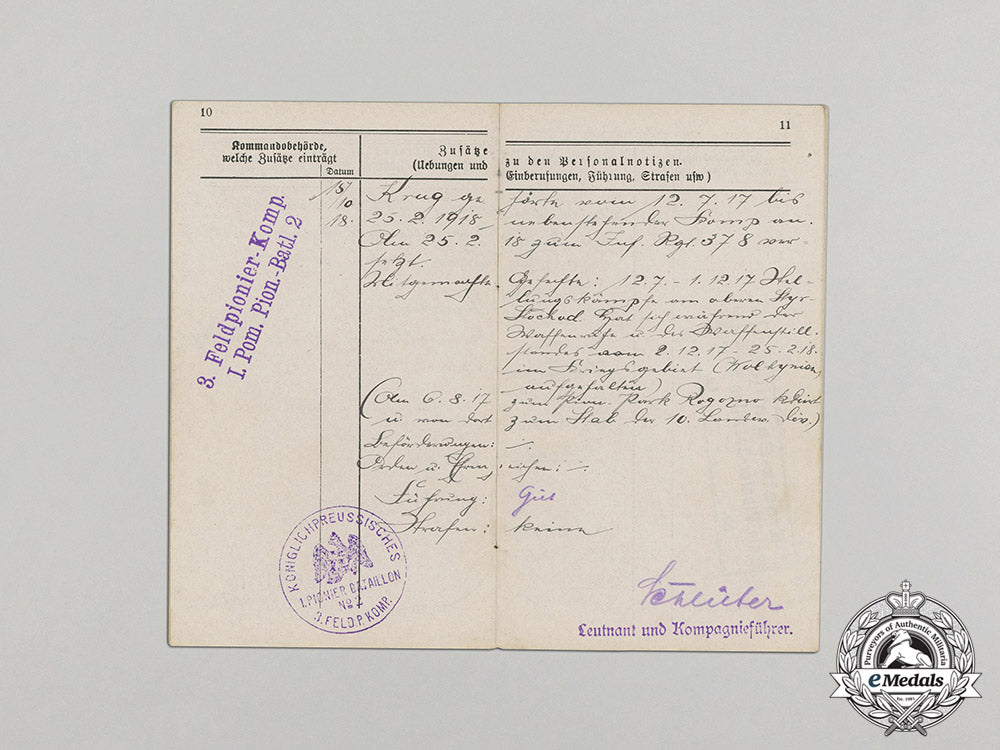 10
11
Kommandobehörde,
welche Zusätze einträgt
Datum
Zusätze
(Uebungen und
zu den Personalnotizen.
Einberufungen, Führung, Strafen usw)
3. Feldpionier-Komp.
I. Pom. Pion.-Batl. 2
15/
10
18.
Krug ge hörte vom 12.7.17 bis
25.2.1918 nebenstehender Komp an.
Am 25.2. 18 zum Inf. Rgt. 378 ver-
setzt.
Mitgemachte Gefechte: 12.7. - 1.12.17 Stel-
lungskämpfe am oberen Styr-
Stochod. Hat sich während der
Waffenruhe u. des Waffenstill-
standes vom 2.12.17 - 25.2.18.
im Kriegsgebiet (Wolhynien)
aufgehalten)
(Am 6.8.17 zum Pion. Park Rogozno kdiert
u. von dort zum Stab der 10. Landw. Div.)
Beförderungen: -/.
Orden u. Ehrenzeichen: -/.
Führung: Gut
Strafen: keine
KÖNIGLICH PREUSSISCHES
1. PIONIER BATAILLON
No 2
3. FELD. P. KOMP.
Schlüter
Leutnant und Kompagnieführer.
Purveyors of Authentic Militaria
eMedals
Est. 1981